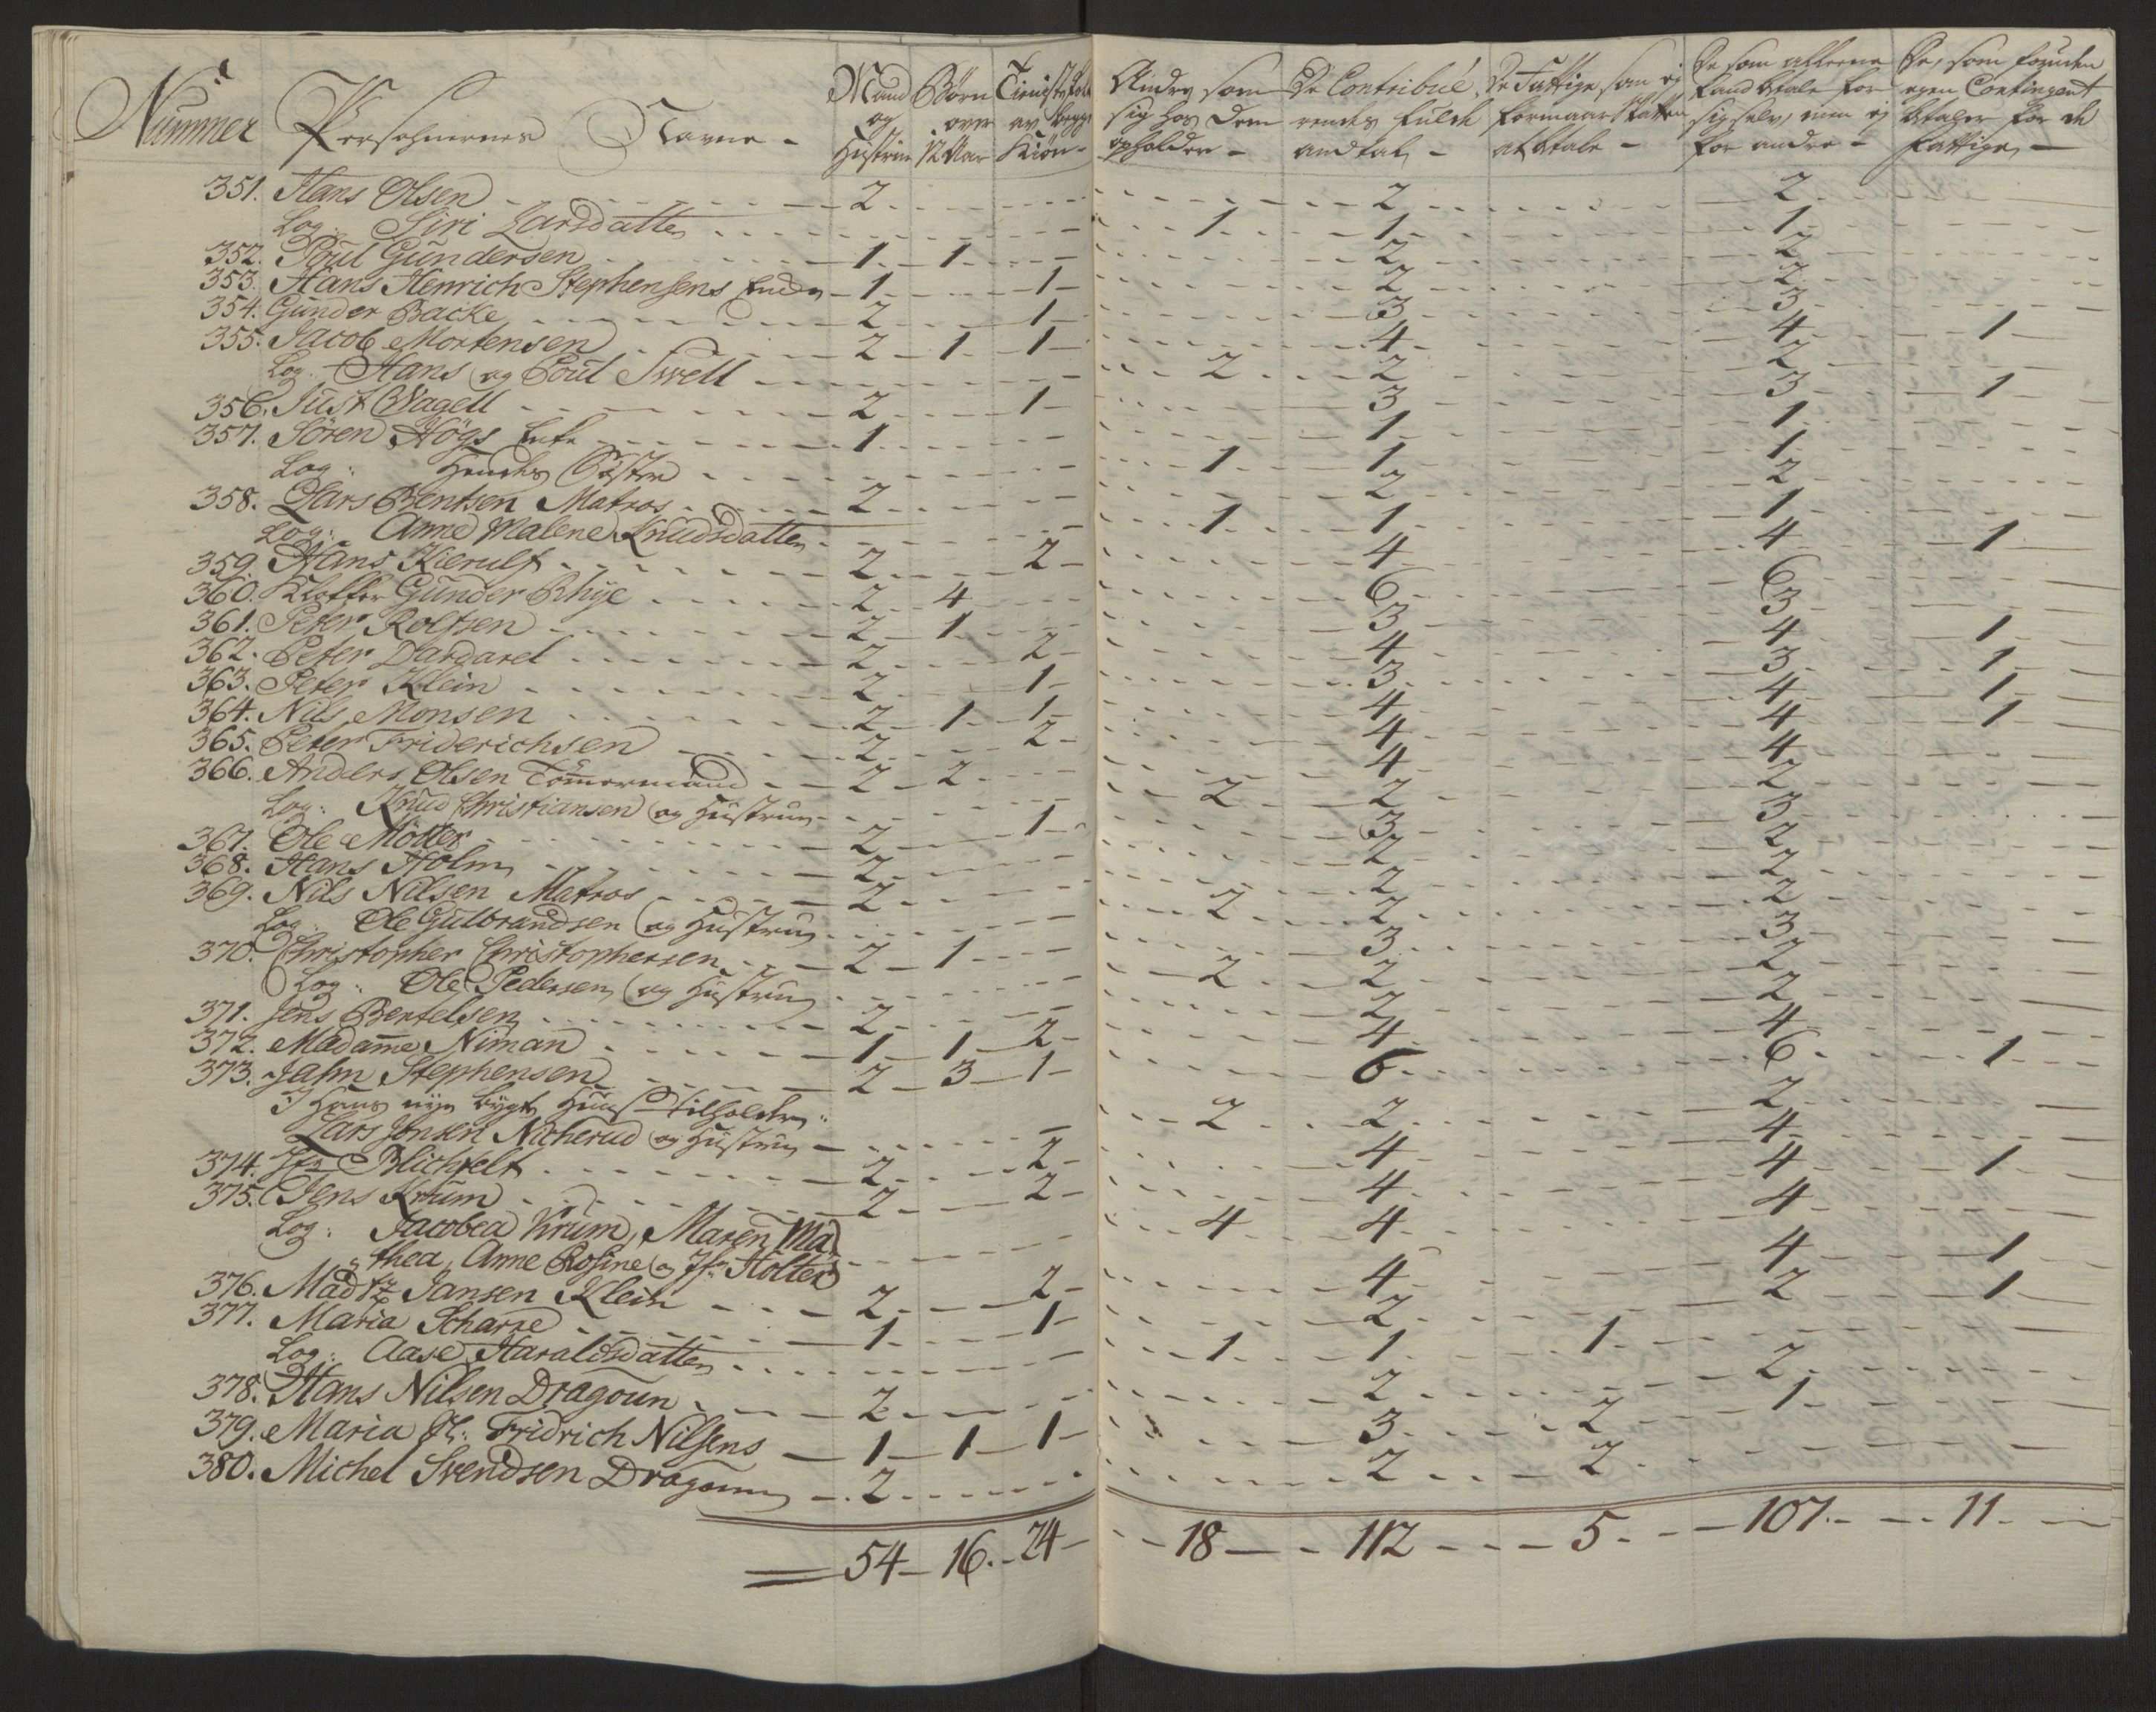 Nummer Persohnernes Navne - Mand og Hustrue Børn over 12 Aar Tieniste Folk av begge Kiøn - Andre som sig hos Dem opholder - De Contribuerendes fulde andtal - De Fattige som ej formaar Skatten at btale - De som alleene kand btale for sig selv, men ej for andre - De, som foruden egen Contingent btaler for de fattige -
351. Hans Olsen 2 2 2
Log: Siri Larsdatter 1 1 1
352. Poul Gundersen 1 1 2 2
353. Hans Henrich Stephensens Encke 1 1 2 2
354. Gunder Backe 2 1 3 3
355. Jacob Mortensen 2 1 1 4 4 1
Log: Hans og Poul Swell 2 2 2
356. Just Wagell 2 1 3 3 1
357. Sören Högs Enke 1 1 1
Log: Hendes Søster 1 1 1
358. Lars Bentsen Matros 2 2 2
Log: Anne Malene Knudsdatter 1 1 1
359. Hans Kierulf 2 2 4 4 1
360. Klokker Gunder Rhÿe 2 4 6 6
361. Peter Rolfsen 2 1 3 3
362. Peter Dardarel 2 2 4 4 1
363. Peter Klein 2 1 3 3 1
364. Nils Monsen 2 1 1 4 4 1
365. Peter Friderichsen 2 2 4 4 1
366. Anders Olsen Tömmermand 2 2 4 4
Log: Knud Christiansen og Hustrue 2 2 2
367. Ole Möller 2 1 3 3
368. Hans Holm 2 2 2
369. Nils Nilsen Matros 2 2 2
Log: Ole Gulbrandsen og Hustrue 2 2 2
370. Christopher Christophersen 2 1 3 3
Log: Ole Pedersen og Hustrue 2 2 2
371. Jens Bertelsen 2 2 2
372. Madame Niman 1 1 2 4 4
373. Jahn Stephensen 2 3 1 6 6 1
I Hans nye bygte Huus tilholder:
Lars Jonsen Nicherud og Hustrue 2 2 2
374. Hr Blichfelt 2 2 4 4
375. Jens Krum 2 2 4 4 1
Log: Jacobea Krum, Maren Ma
thea, Anne Rosine og Jfr Holter 4 4 4
376. Madtz Jansen Klein 2 2 4 4 1
377. Maria Scharpe 1 1 2 2 1
Log: Aase Haraldsdatter 1 1 1
378. Hans Nilsen Dragoun 2 2 2
379. Maria Sl: Fridrich Nilsens 1 1 1 3 2 1
380. Michel Svendsen Dragoun 2 2 2
54 16 24 18 112 5 107 11